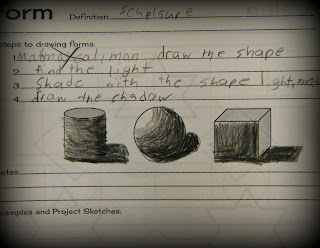 orm Definition: sculpsure
steps to drawing forms:
1. draw the shape
2. find the light
3. shade with the shape light, med
4. draw the shadow
otes:
xamples and Project Sketches: